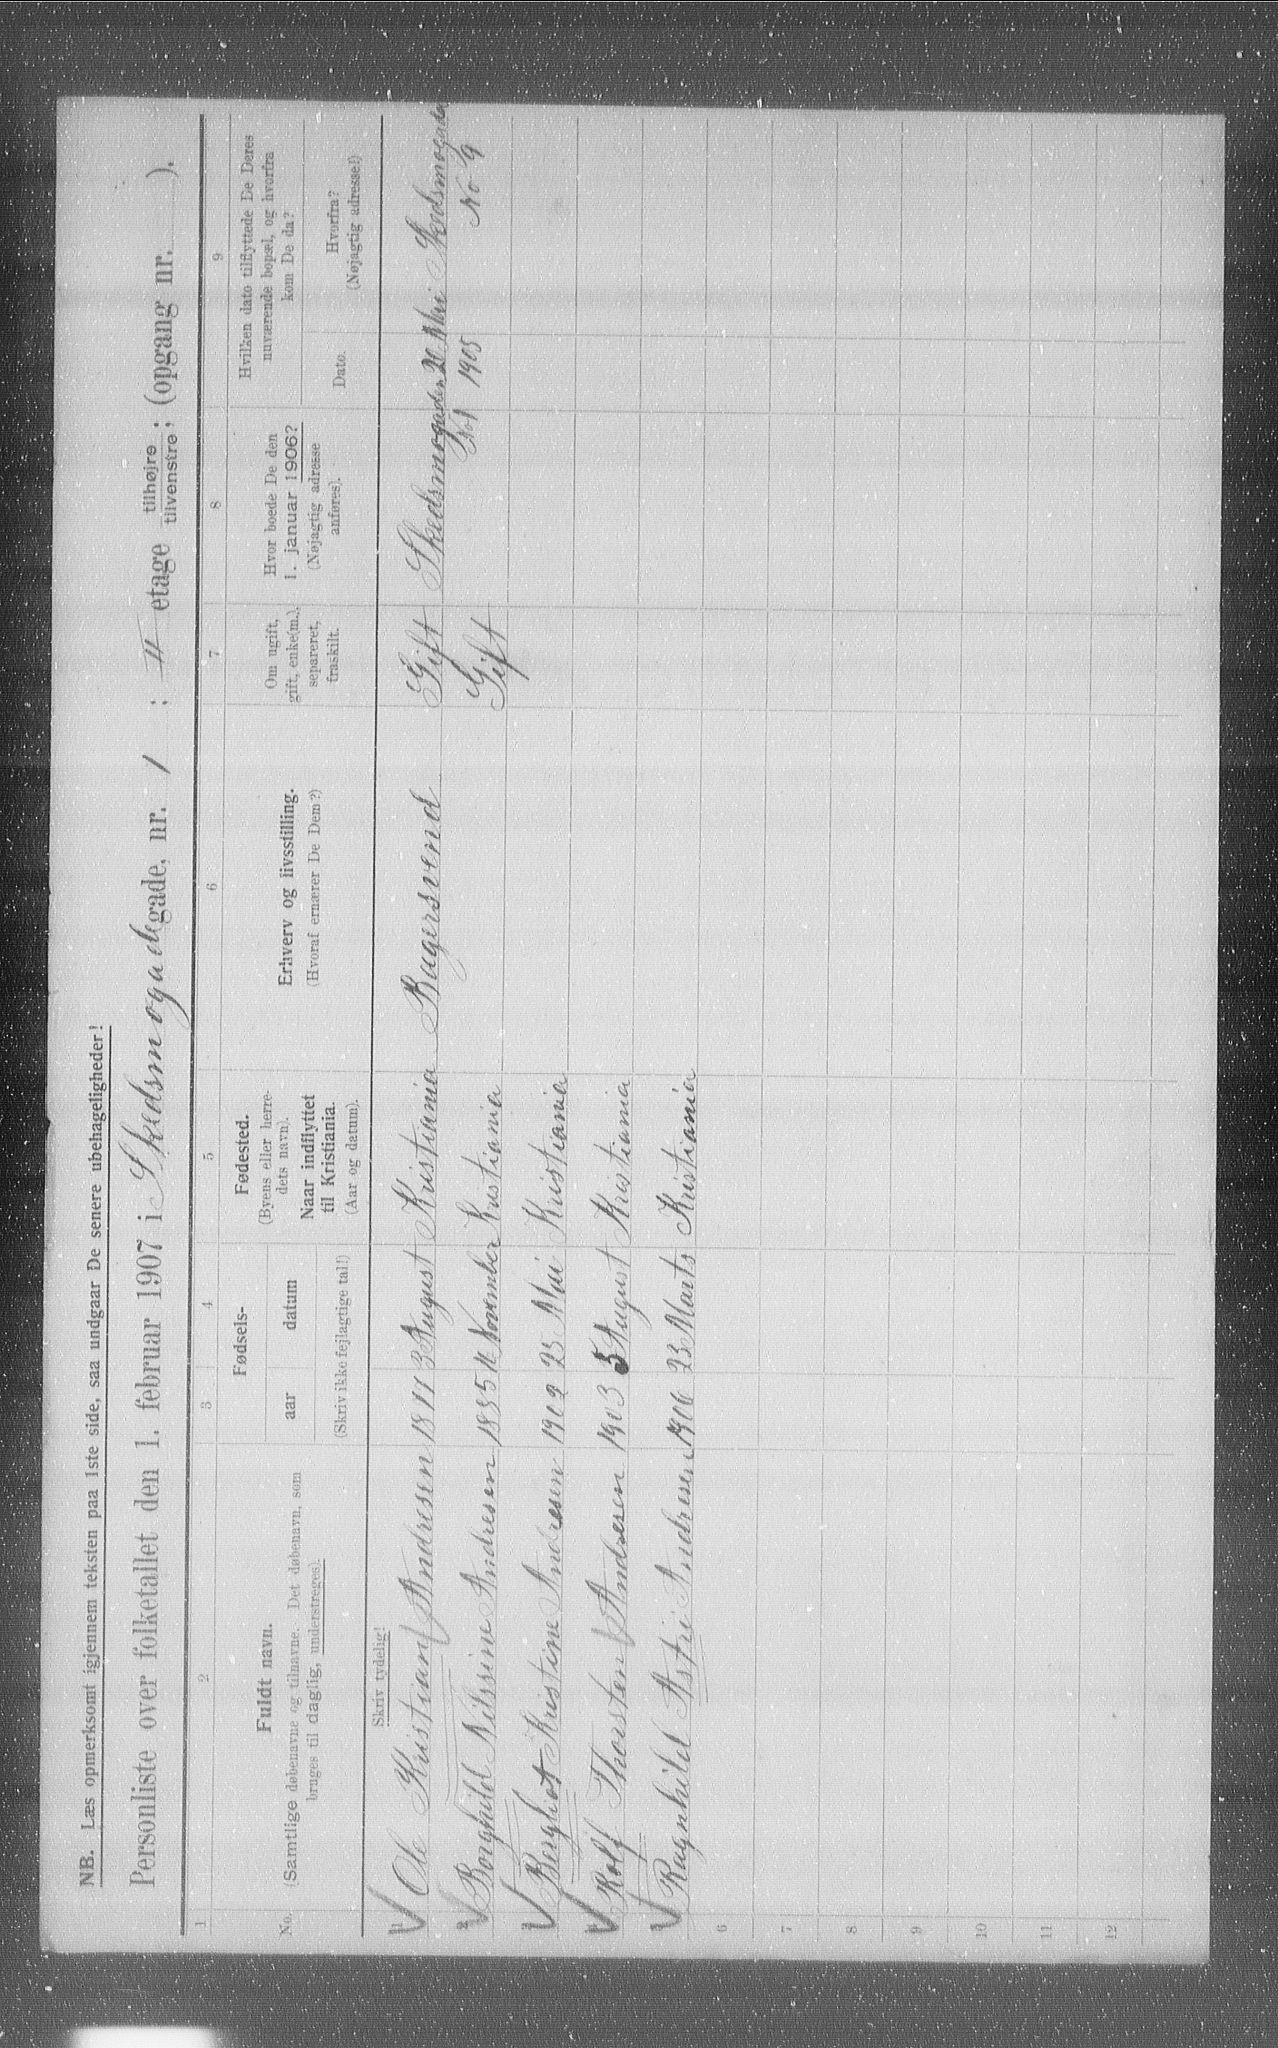 NB. Læs opmerksomt igjennem teksten paa 1ste side, saa undgaar De senere ubehageligheder!
Personliste over folketallet den 1. februar 1907 i Skedsmogadegade, nr. 1 ; II etage tilhøjre tilvenstre; (opgang nr. ).
1 2 3 4 5 6 7 8 9
No.
Fuldt navn.
(Samtlige døbenavne og tilnavne. Det døbenavn, som
bruges til daglig, understreges).
Fødsels-
aar datum
(Skriv ikke fejlagtige tal!)
Fødested.
(Byens eller herre-
dets navn).
Naar indflyttet
til Kristiania.
(Aar og datum).
Erhverv og livsstilling.
(Hvoraf ernærer De Dem?)
Om ugift,
gift, enke(m.),
separeret,
fraskilt.
Hvor boede De den
1. januar 1906?
(Nøjagtig adresse
anføres).
Hvilken dato tilflyttede De Deres
nuværende bopæl, og hvorfra
kom De da?
Dato.
Hvorfra?
(Nøjagtig adresse!)
Skriv tydelig!
1 Ole Kristian Andresen 1877 3 August Kristiania Bagersvend Gift Skedsmogaden No 1 20 Mai 1905 Skedsmogaden No 9
2 Borghild Nilssine Andresen 1885 November Kristiania Gift
3 Bergliot Kristine Andresen 1902 23 Mai Kristiania
4 Rolf Thorsten Andresen 1903 5 August Kristiania
Ragnhild Astri Andresen 1906 23 Marts Kristiania
6
7
8
9
10
11
12